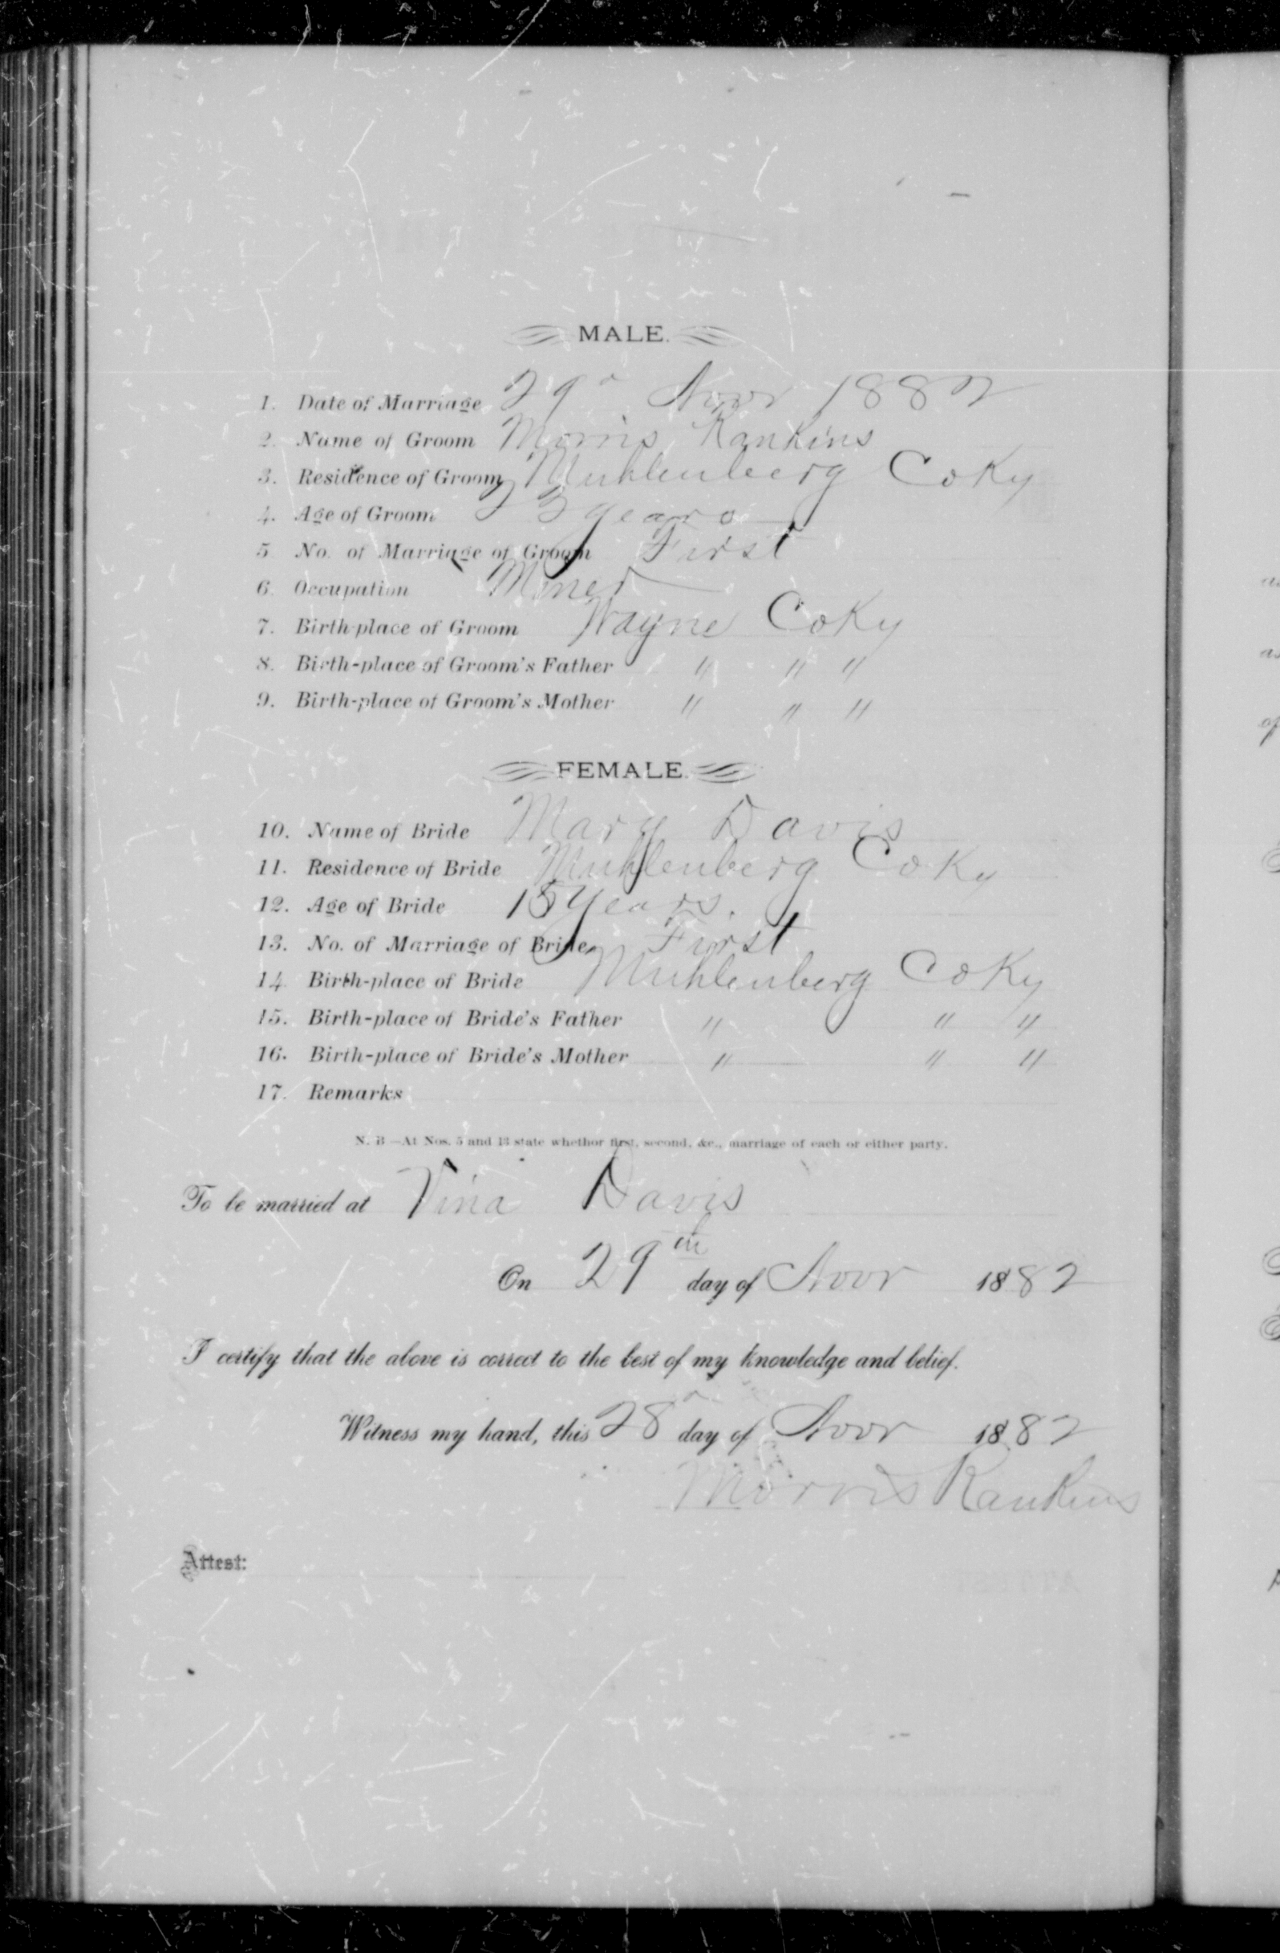 MALE.
1. Date of Marriage 29" Novr 1882
2. Name of Groom Morris Rankins
3. Residence of Groom Muhlenberg Co Ky
4. Age of Groom 23 years
5. No. of Marriage of Groom First
6. Occupation Miner
7. Birth-place of Groom Wayne Co Ky
8. Birth-place of Groom's Father " " "
9. Birth-place of Groom's Mother " " "
FEMALE.
10. Name of Bride Mary Davis
11. Residence of Bride Muhlenberg Co Ky
12. Age of Bride 15 years.
13. No. of Marriage of Bride First
14. Birth-place of Bride Muhlenberg Co Ky
15. Birth-place of Bride's Father " " "
16. Birth-place of Bride's Mother " " "
17. Remarks
N. B—At Nos. 5 and 13 state whether first, second, &c., marriage of each or either party.
To be married at Vina Davis
On 29th day of Novr 1882
I certify that the above is correct to the best of my knowledge and belief.
Witness my hand, this 28" day of Novr 1882
Morris Rankins
Attest: